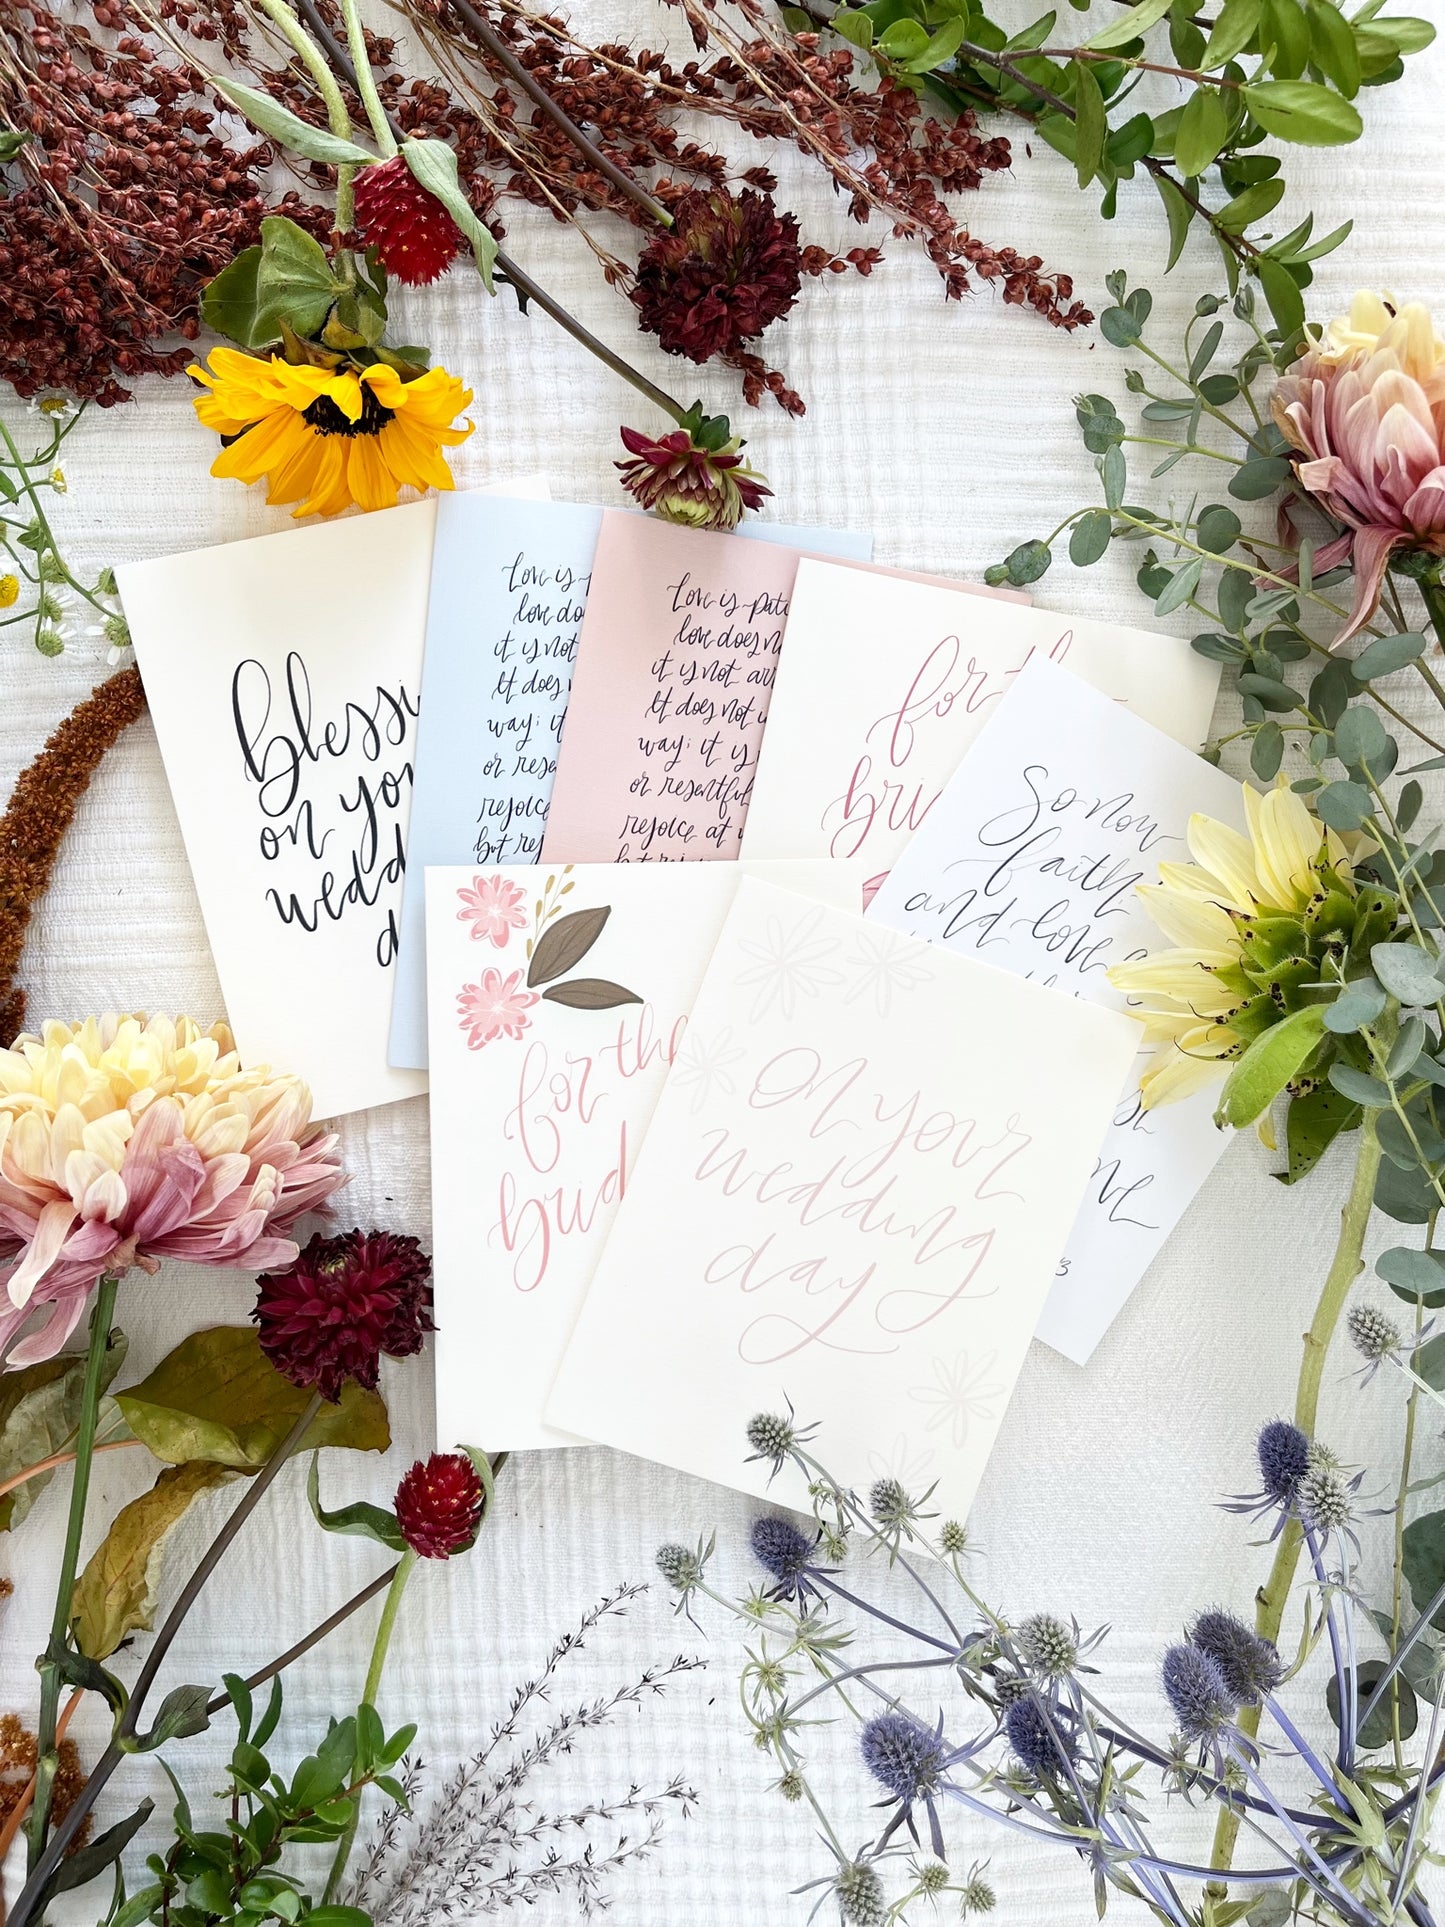 blessi
on you
wedd
d
Love is
love do
it is not
It does
way; it
or rese
rejoice
but rej
Love is pati
love does n
it is not arr
It does not i
way; it is
or resentful
rejoice at w
but rejoi
for th
bri
So now
faith,
and love
for the
brid
On your
wedding
day